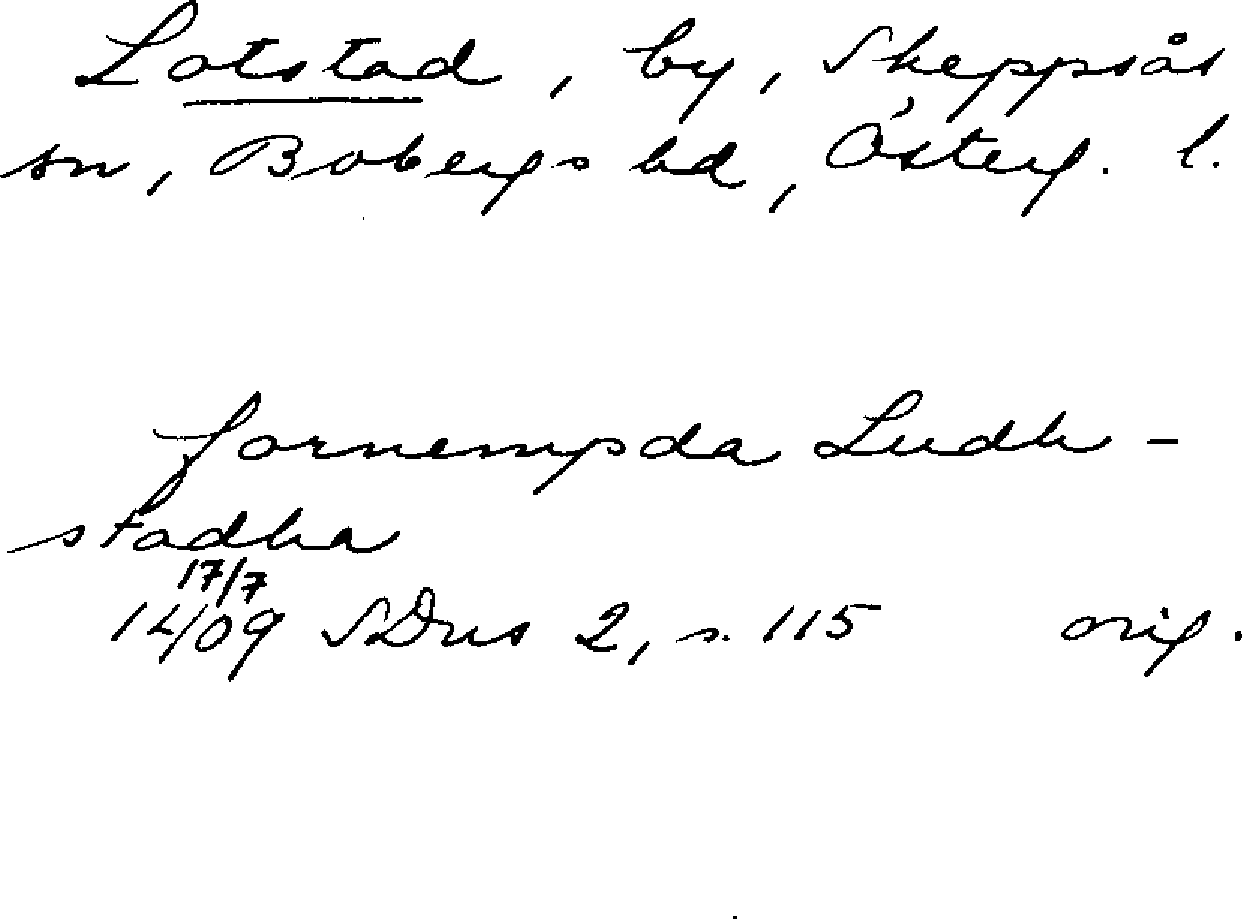 Lotstad, by, Skeppsås
sn, Bobergs hd, Österg. l.
fornempda Ludh-
stadha
17/7
1409 SDns 2, s. 115 orig.